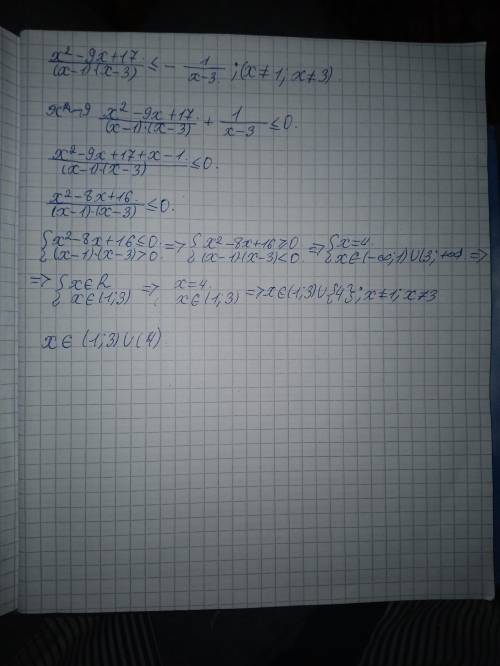 x²-9x+17/(x-1)·(x-3) ≤ - 1/x-3 ; (x≠1; x≠3)
x²-9x+17/(x-1)·(x-3) + 1/x-3 ≤ 0.
x²-9x+17+x-1/(x-1)·(x-3) ≤ 0.
x²-8x+16/(x-1)·(x-3) ≤ 0.
{x²-8x+16≤0. (x-1)·(x-3)>0. => {x²-8x+16≥0 (x-1)·(x-3)<0. => {x=4. x∈(-∞;1)∪(3;+∞ =>
=> {x∈R x∈(1;3) => x=4. x∈(1;3) => x∈(1;3)∪{4}; x≠1; x≠3
x∈(1;3)∪(4)